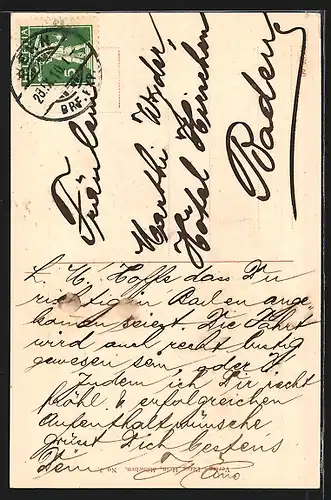 HELVETIA
Fräulein
Marthli Wyder,
Hôtel Hirschen
Baden
L. M. Hoffe dass Du
richtig in Baden ange-
komen seiest. Die Fahrt
wird auch recht lustig
gewesen sein, oder?
Indem ich Dir recht
wohl & erfolgreichen
Aufenthalt wünsche
grüsst Dich bestens
Dein